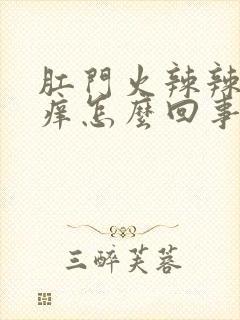 肛門火辣辣
痒怎麼回事
三醉芙蓉